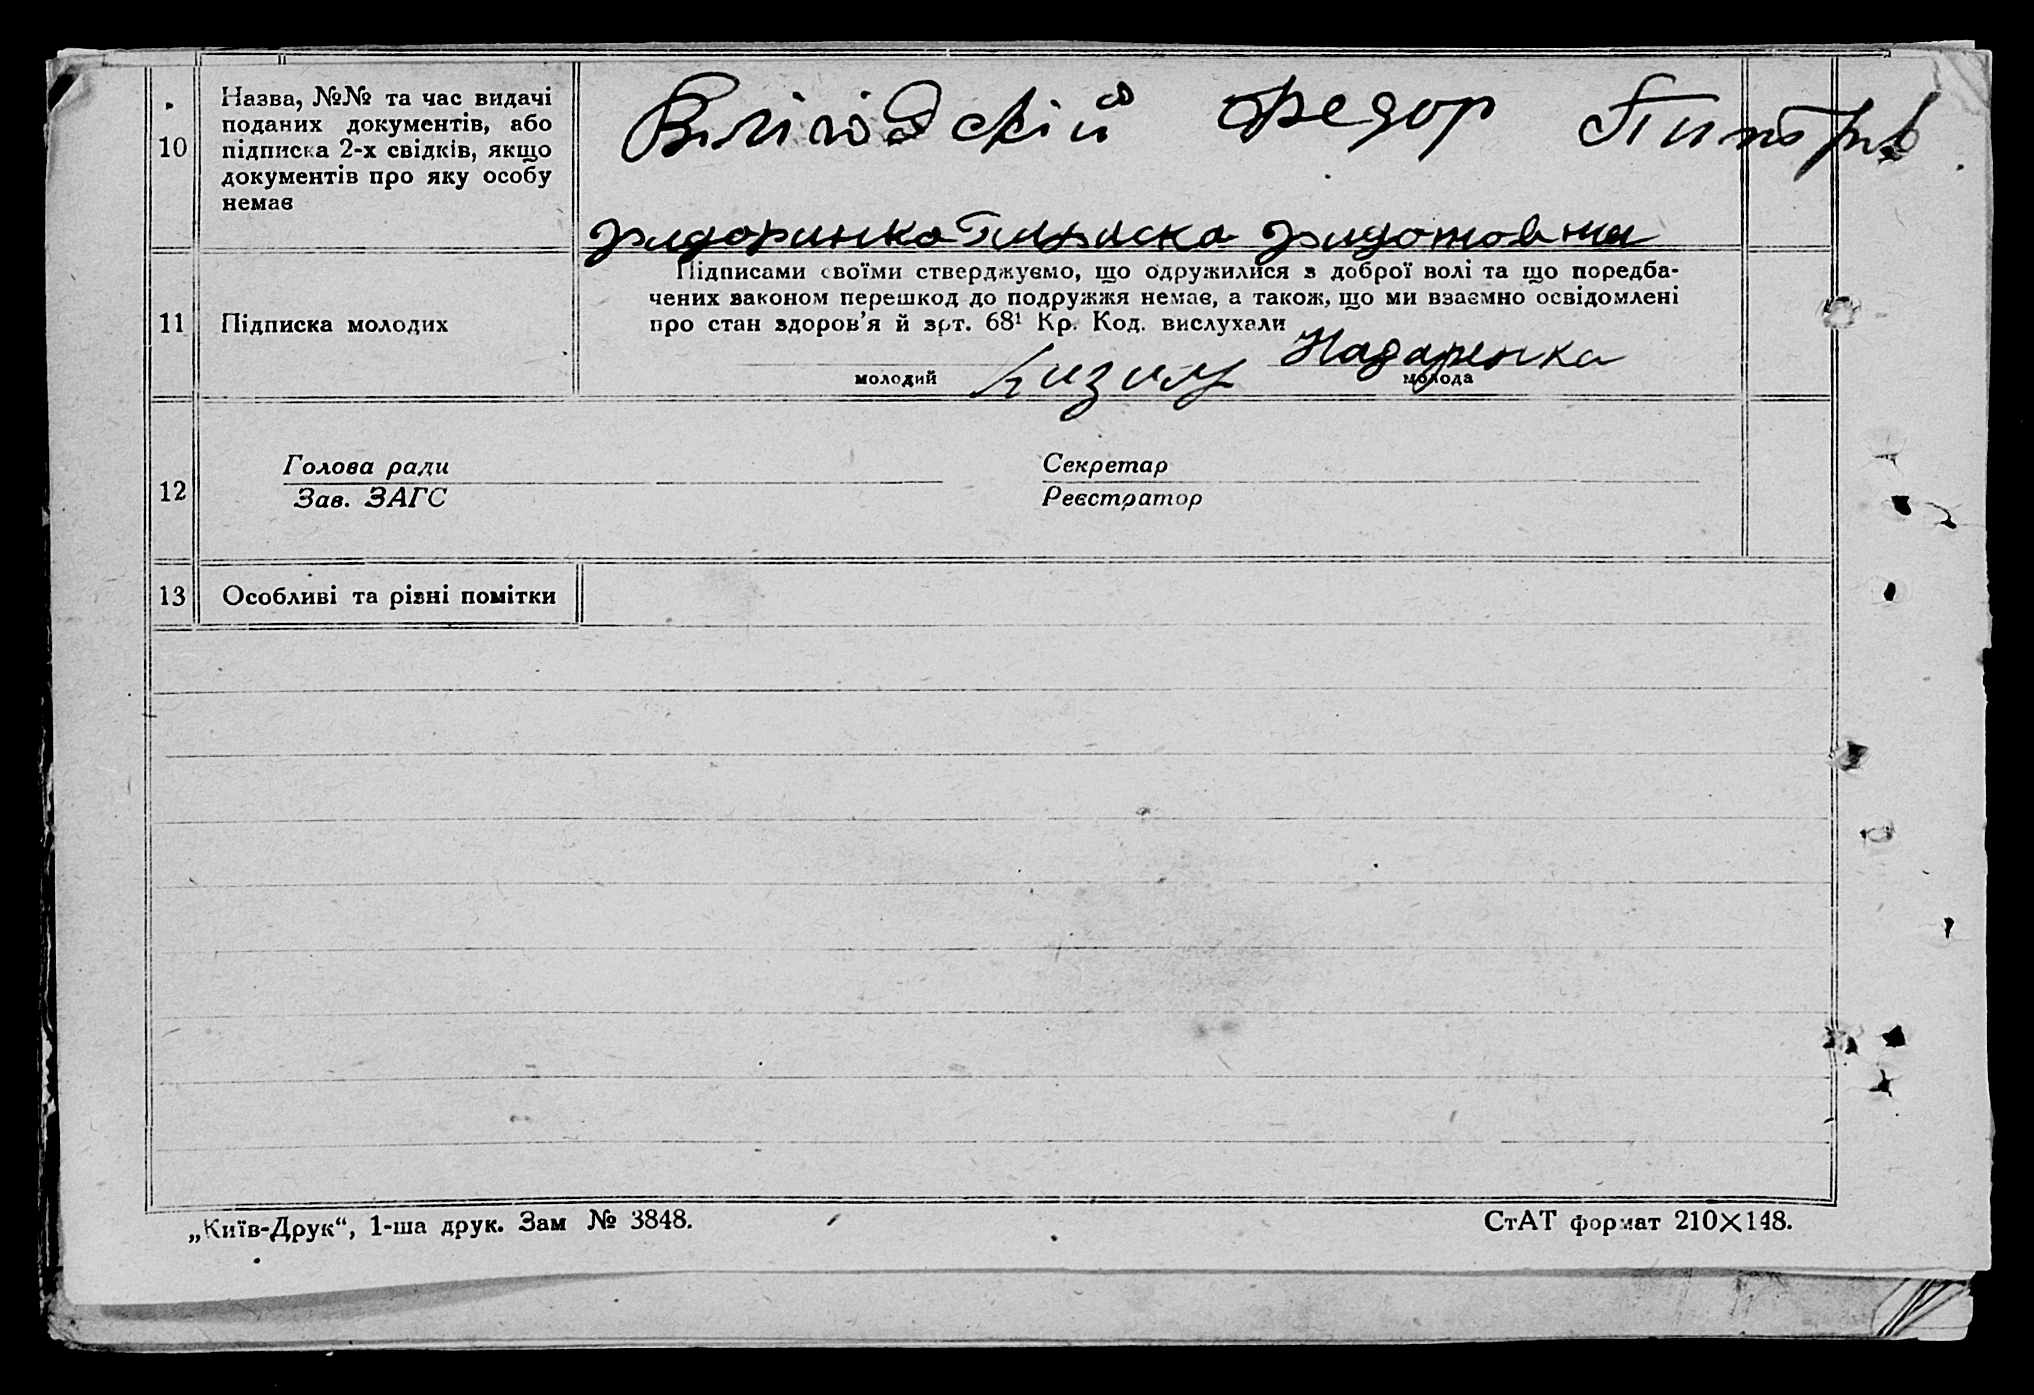 10
Назва, №№ та час видачі
поданих документів, або
підписка 2-х свідків, якщо
документів про яку особу
немає
Федор
11
Підписка молодих
Підписами своїми стверджуємо, що одружилися з доброї волі та що поредба-
чених законом перешкод до подружжя немає, а також, що ми взаємно освідомлені
про стан здоров'я й арт. 68¹ Кр. Код. вислухали
молодий Кизим молода Надаренка
12
Голова ради
Зав. ЗАГС
Секретар
Реєстратор
13
Особливі та різні помітки
„Київ-Друк“, 1-ша друк. Зам № 3848.
СтАТ формат 210×148.